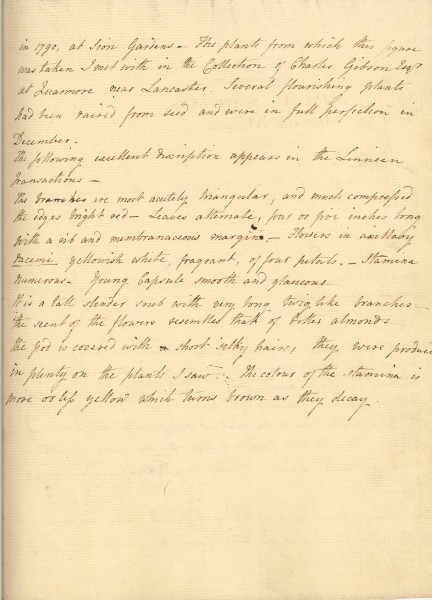 in 1790, at Sion Gardens - The plants from which this figure
was taken I met with in the Collection of Charles Gibson Esqr
at Quarmore near Lancaster. Several flourishing plants
had been raised from seed and were in full perfection in
December.
The following excellent discription appears in the Linnean
Transactions -
The branches are most acutely triangular, and much compressed
the edges bright red - Leaves alternate, four or five inches long
with a rib and membranaceous margin. - Flowers in axillary
racemi yellowish white, fragrant, of four petals. - Stamina
numerous - Young Capsule smooth and glaucous
It is a tall slender srub with very long twig like branches -
the scent of the flowers resembles that of bitter almonds
the pod is covered with short silky hairs, they were produce
in plenty on the plants I saw. The colour of the stamina is
more or less yellow which turns brown as they decay.